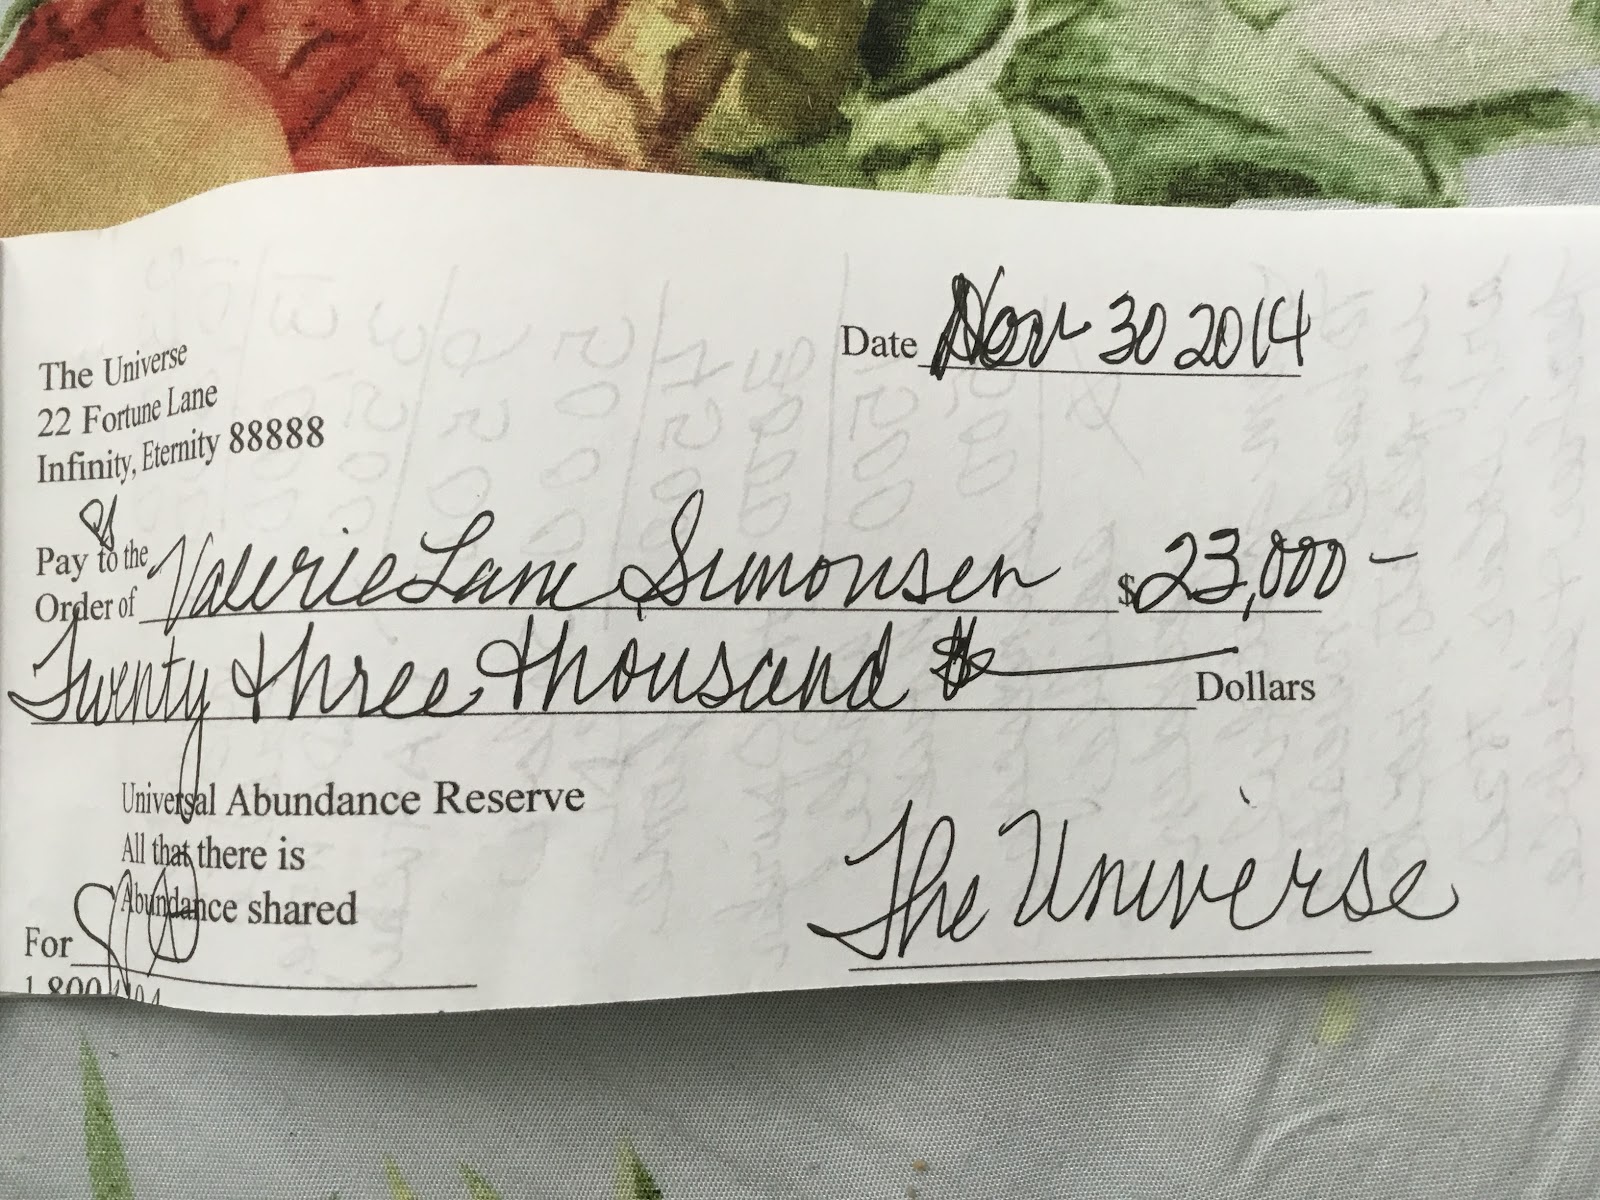 Date Nov 30 2014
The Universe
22 Fortune Lane
Infinity, Eternity 88888
Pay to the
Order of Valerie Lane Simonsen $23,000 —
Twenty three thousand Dollars
Universal Abundance Reserve
All that there is
Abundance shared
The Universe
For